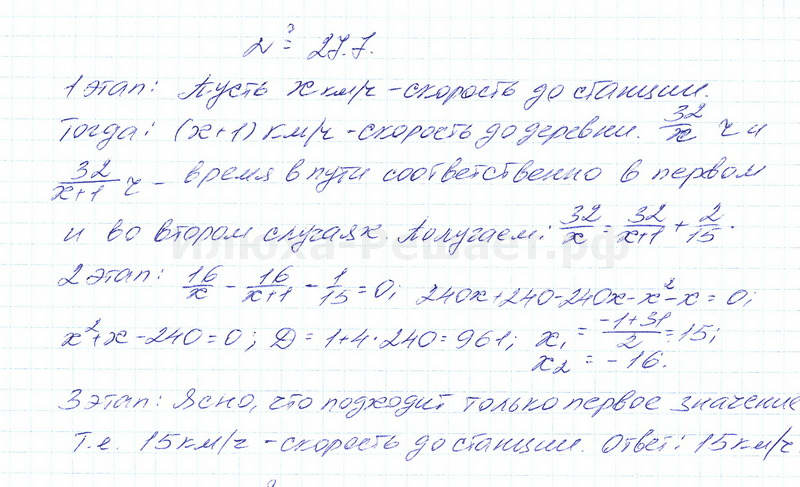 № 27.7.
1 этап: Пусть x км/ч - скорость до станции.
Тогда: (x+1) км/ч - скорость до деревни. 32/x ч и
32/(x+1) ч - время в пути соответственно в первом
и во втором случаях. Получаем: 32/x = 32/(x+1) + 2/15.
илюха-решает.рф
2 этап: 16/x - 16/(x+1) - 1/15 = 0; 240x+240-240x-x²-x=0;
x²+x-240=0; D=1+4·240=961; x₁ = (-1+31)/2 = 15;
x₂ = -16.
3 этап: Ясно, что подходит только первое значение
т.е. 15 км/ч - скорость до станции. Ответ: 15 км/ч.